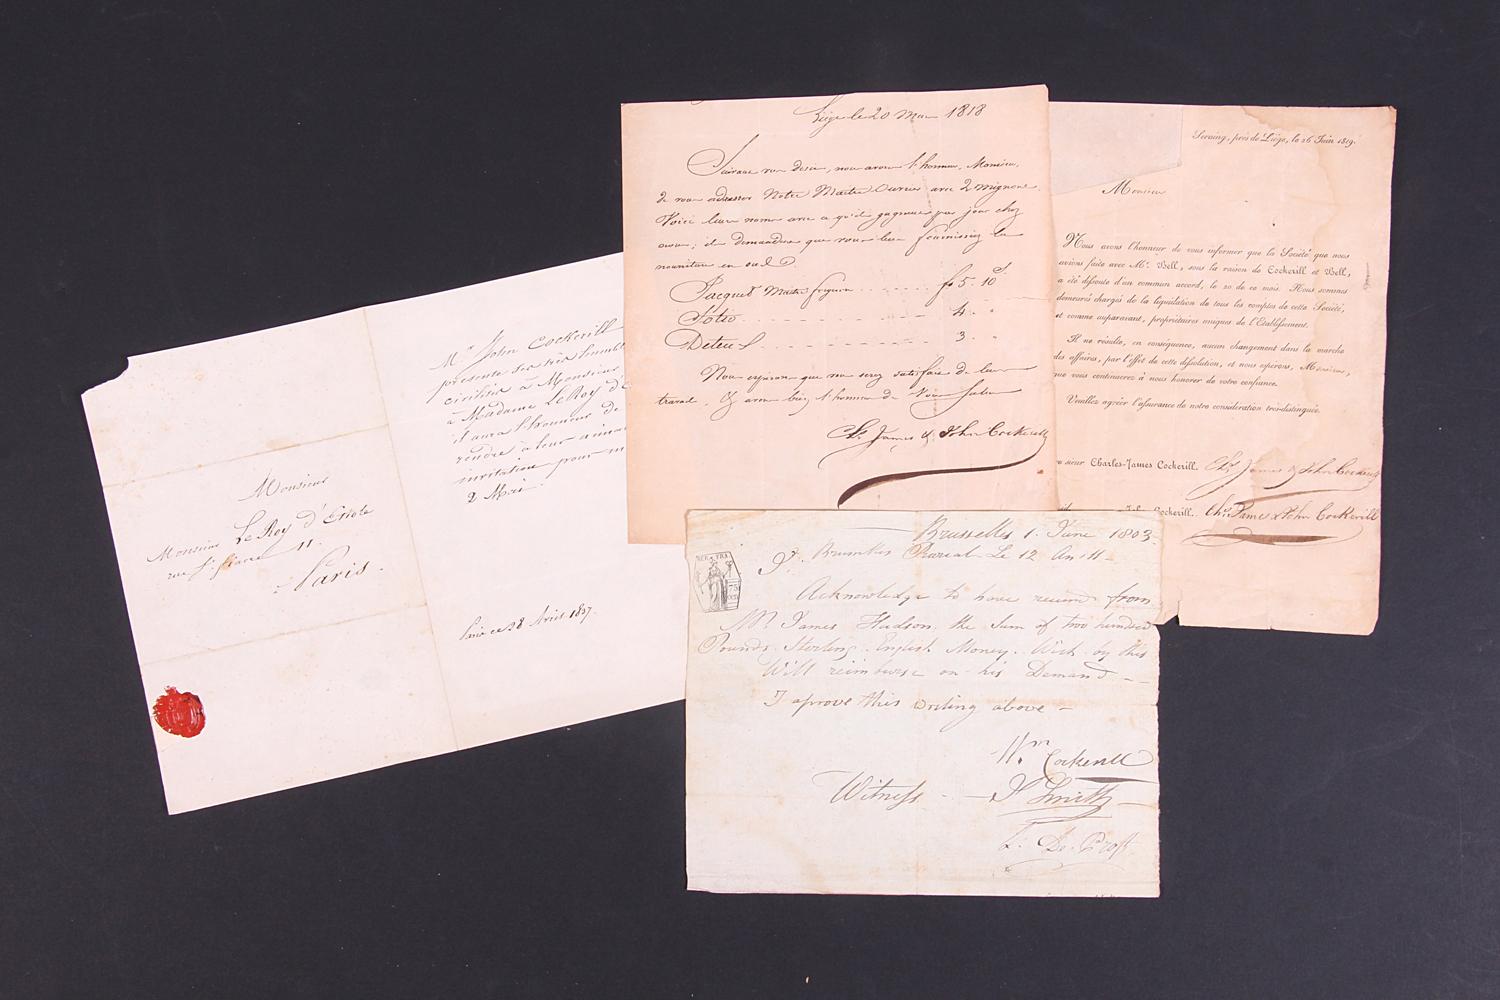 Monsieur
Monsieur Le Roy d'Etiole
rue St. 11.
Paris.
Mr John Cockerill
présente ses très humbl
civilités à Monsieur
& Madame Le Roy d'E
il aura l'honneur de
rendre à leur aima
invitation pour
2 Mai.
Paris ce 28 Avril 1837.
Liège le 20 1818
Suivant vos désirs, nous avons l'honneur, Monsieur,
de vous adresser Notre Maitre Ouvrier avec 2 mignons
Voici leurs noms avec ce qu'ils gagnent par jour chez
nous; ils demandent que vous leur fournissiez la
nourriture en sus
Jacquet Maitre 5. 10
4.
3.
Nous espérons que vous serez satisfait de leur
travail. avons bien l'honneur de Vous saluer
Chs. James & John Cockerill
Seraing, près de Liége, le 26 Juin 1819.
Monsieur
Nous avons l'honneur de vous informer que la Société que nous
avions faite avec Mr. Bell, sous la raison de Cockerill et Bell,
a été dissoute d'un commun accord, le 20 de ce mois. Nous sommes
demeurés chargés de la liquidation de tous les comptes de cette Société,
et comme auparavant, propriétaires uniques de l'Etablissement.
Il ne résulte, en conséquence, aucun changement dans la marche
des affaires, par l'effet de cette dissolution, et nous espérons, Monsieur,
que vous continuerez à nous honorer de votre confiance.
Veuillez agréer l'assurance de notre considération très-distinguée.
sieur Charles-James Cockerill. Chs James & John Cockerill
John Cockerill. Chs James & John Cockerill
Brussells 1. June 1803.
Le 12 An 11
REP. FRA.
75
CEN
Acknowledge to have receivd from
Mr James Hudson. the Sum of two hundred
Pounds. Sterling. English Money. Wich by this
Will reimburse on his Demand
I aprove this writing above
Wm Cockerill
Witness J Smith
De Prost